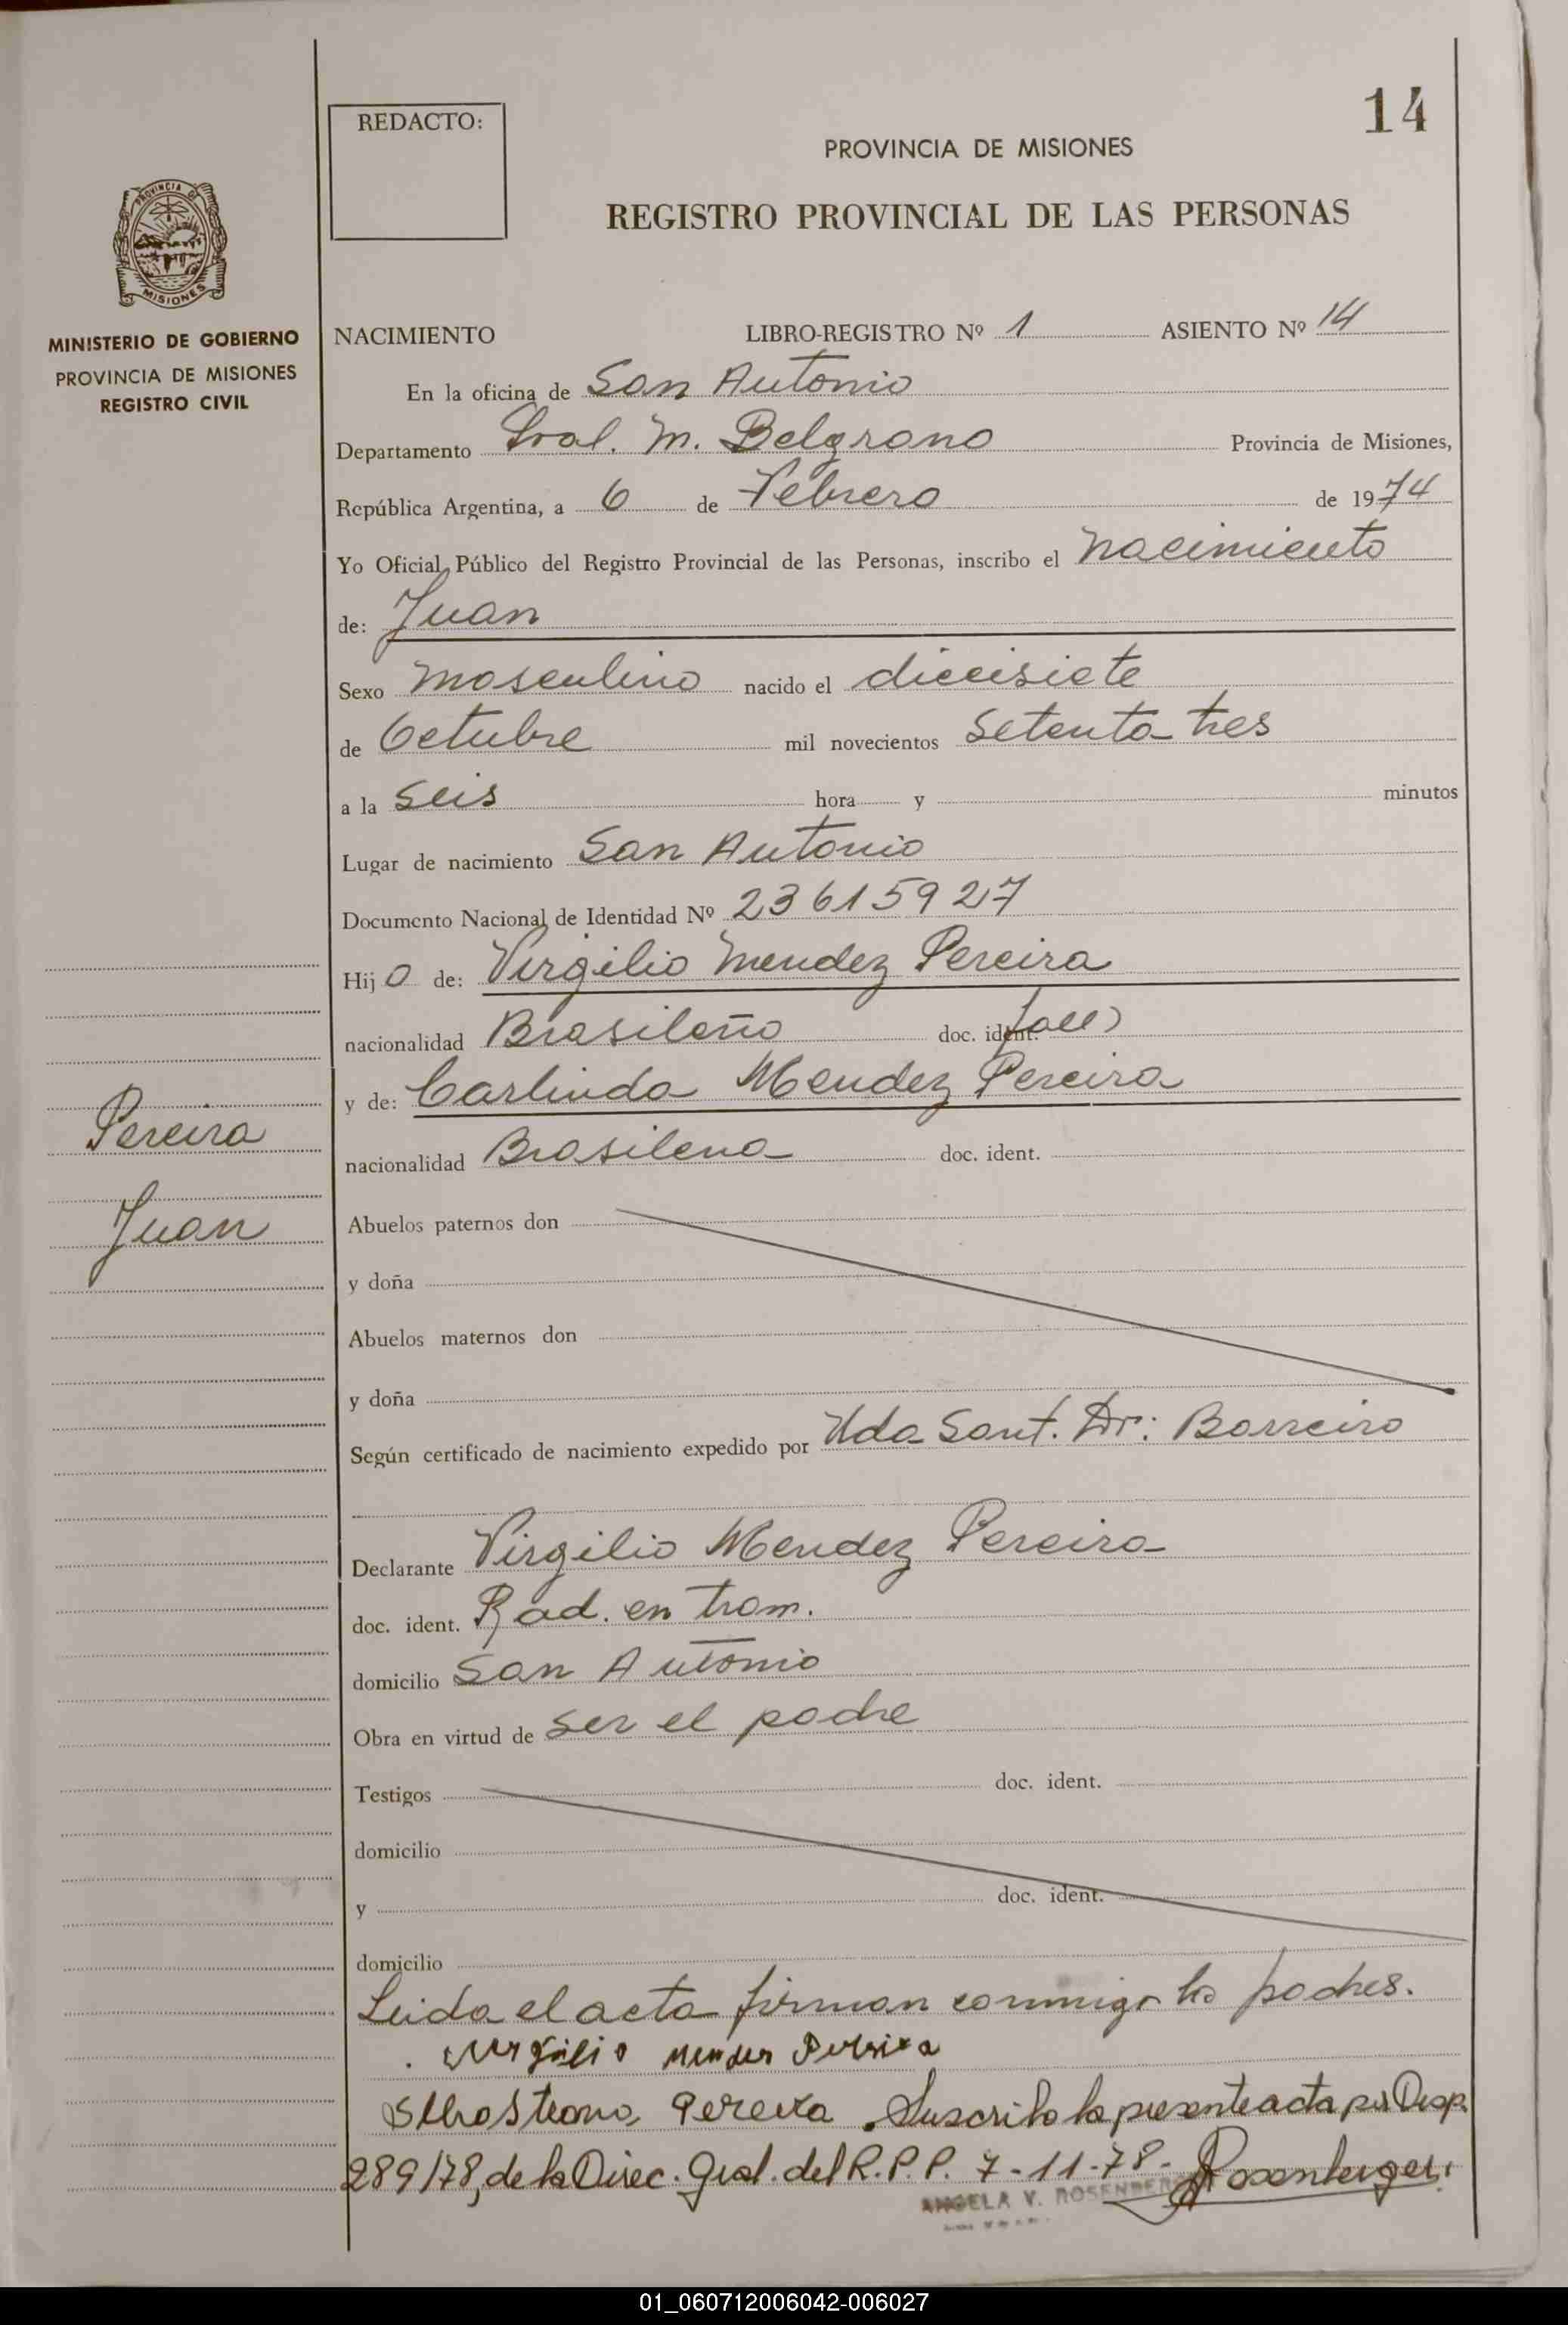 14
REDACTO:
PROVINCIA DE MISIONES
REGISTRO PROVINCIAL DE LAS PERSONAS
PROVINCIA DE
MISIONES
MINISTERIO DE GOBIERNO
PROVINCIA DE MISIONES
REGISTRO CIVIL
NACIMIENTO LIBRO-REGISTRO Nº 1 ASIENTO Nº 14
En la oficina de San Antonio
Departamento Gral. M. Belgrano Provincia de Misiones,
República Argentina, a 6 de Febrero de 1974
Yo Oficial Público del Registro Provincial de las Personas, inscribo el nacimiento
de: Juan
Sexo masculino nacido el diecisiete
de Octubre mil novecientos setenta tres
a la seis hora y minutos
Lugar de nacimiento San Antonio
Documento Nacional de Identidad Nº 23615927
Hijo de: Virgilio Mendez Pereira
nacionalidad Brasileño doc. ident.
y de: Carlinda Mendez Pereira
nacionalidad Brasilena doc. ident.
Pereira
Juan
Abuelos paternos don
y doña
Abuelos maternos don
y doña
Según certificado de nacimiento expedido por Uda Sant. Dr: Barreiro
Declarante Virgilio Mendez Pereira
doc. ident. Rad. en tram.
domicilio San Antonio
Obra en virtud de ser el padre
Testigos doc. ident.
domicilio
y doc. ident.
domicilio
Leida el acta firman conmigo los padres.
Pereira . Suscribo la presente acta por Disp.
289/78, de la Direc. Gral. del R.P.P. 7-11-78- Rosenberger
ANGELA V. ROSENBER
01_060712006042-006027